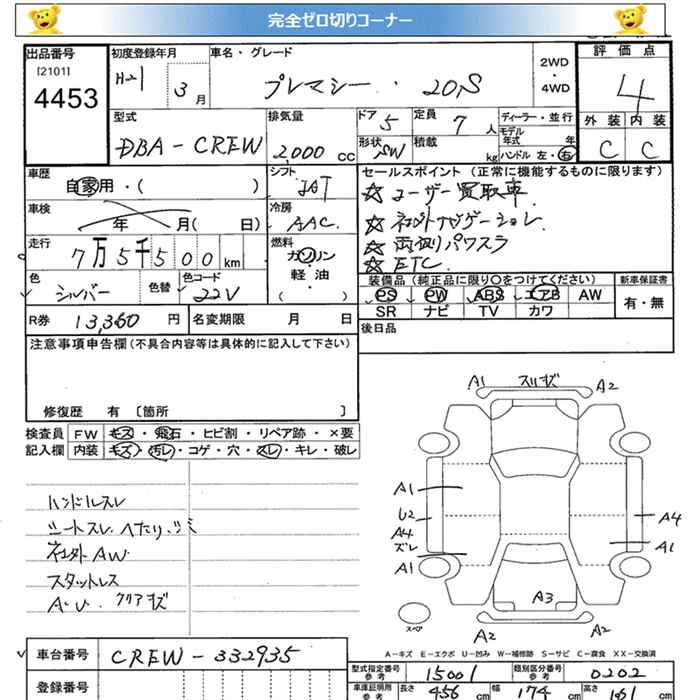 完全ゼロ切りコーナー
出品番号 [2101] 4453
初度登録年月 H21 3月
車名・グレード プレマシー・20S
2WD・4WD
評価点 4
外装 C 内装 C
型式 DBA-CREW
排気量 2,000cc
ドア 5
形状 SW
定員 7人
積載 kg
ディーラー・並行
モデル年式 年
ハンドル 左・右
車歴 自家用・( )
シフト IAT
車検 年 月( 日)
冷房 AAC
走行 7万5千500km
燃料 ガソリン 軽油・( )
色 シルバー 色替
色コード 22V
R券 13,360円
名変期限 月 日
セールスポイント(正常に機能するものに限ります)
☆ユーザー買取車
☆社外ナビゲーション
☆両側パワスラ
☆ETC
装備品(純正品に限り○をつけてください) 新車保証書
PS PW ABS エアB AW 有・無
SR ナビ TV カワ
後日品
注意事項申告欄(不具合内容等は具体的に記入して下さい)
修復歴 有 〔箇所 〕
検査員 FW キズ・飛石・ヒビ割・リペア跡・×要
記入欄 内装 キズ・汚レ・コゲ・穴・スレ・キレ・破レ
ハンドルスレ
シートスレ、ヘたり、シミ
社外AW
スタットレス
A・U クリアキズ
A1 スリキズ A2
A1
U2
A4
ズレ
A1
A4
A1
A3
スペア
A2 A2
A-キズ E-エクボ U-凹み W-補修跡 S-サビ C-腐食 XX-交換済
車台番号 CREW-332935
登録番号
型式指定番号 参考 15001 類別区分番号 参考 0202
車庫証明用 参考 長さ 456cm 幅 174cm 高さ 161cm